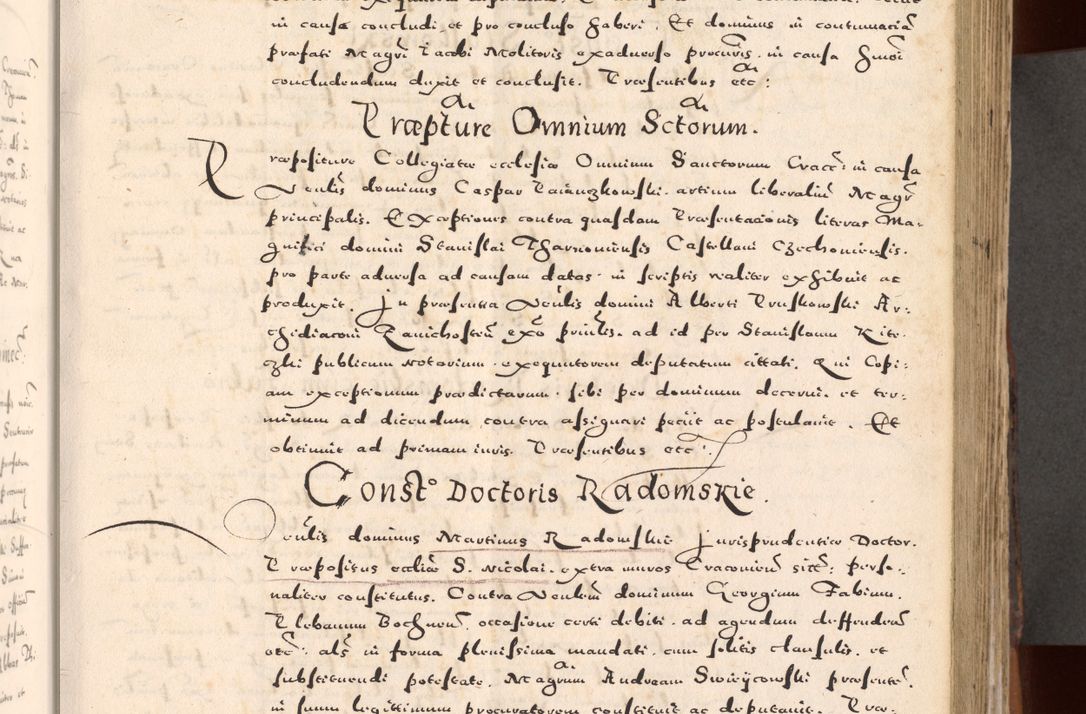 in causa concludi, et pro concluso haberi. Et dominus in contumaciã
præfati Magr̃i Jacobi Molitoris exaduerso procur̃is. in causa hmõi
concludendum duxit et conclusit. Præsentibus etc̃:
Præpture Omnium Sctorum.
Præpositure Collegiatæ ecclesiæ Omnium Sanctorum Cracc: in causa
Venlis dominus Caspar artium liberaliũ Magr̃
principalis. Exceptiones contra quasdam Præsentationis literas Ma-
gnifici domini Stanislai Tharnouiensis Castellani Czechouiensis.
pro parte aduersa ad causam datas. in scriptis realiter exhibuit ac
produxit. Jn præsentia Venlis domini Alberti Pruskowski Ar-
chidiaconi exõ priñlis. ad id per Stanislaum Kite-
czki publicum notarium. exequutorem deputatum cittati. Qui Copi-
am exceptionum prædictarum. sibi per dominum decerni. et ter-
minum ad dicendum contra assignari petiit ac postulauit. Et
obtinuit ad primam iuris. Præsentibus etc̃:.
Const° Doctoris Radomskie.
Venlis dominus Martinus Radomskie Jurisprudentiæ Doctor.
Præpositus eccliæ S. Nicolai. extra muros Cracouieñ sitæ: perso-
naliter constitutus. Contra Venlem dominum Georgium Fabium.
Plebanum Bochneñ. occasione certi debiti. ad agendum deffendeñ
etc̃: als̃ in forma plenissima mandati. cum solitis clausulis. et
substituendi potestate. Magrum Andream præsenteñ.
in suum legittimum procuratorem constituit ac deputauit. Præ-